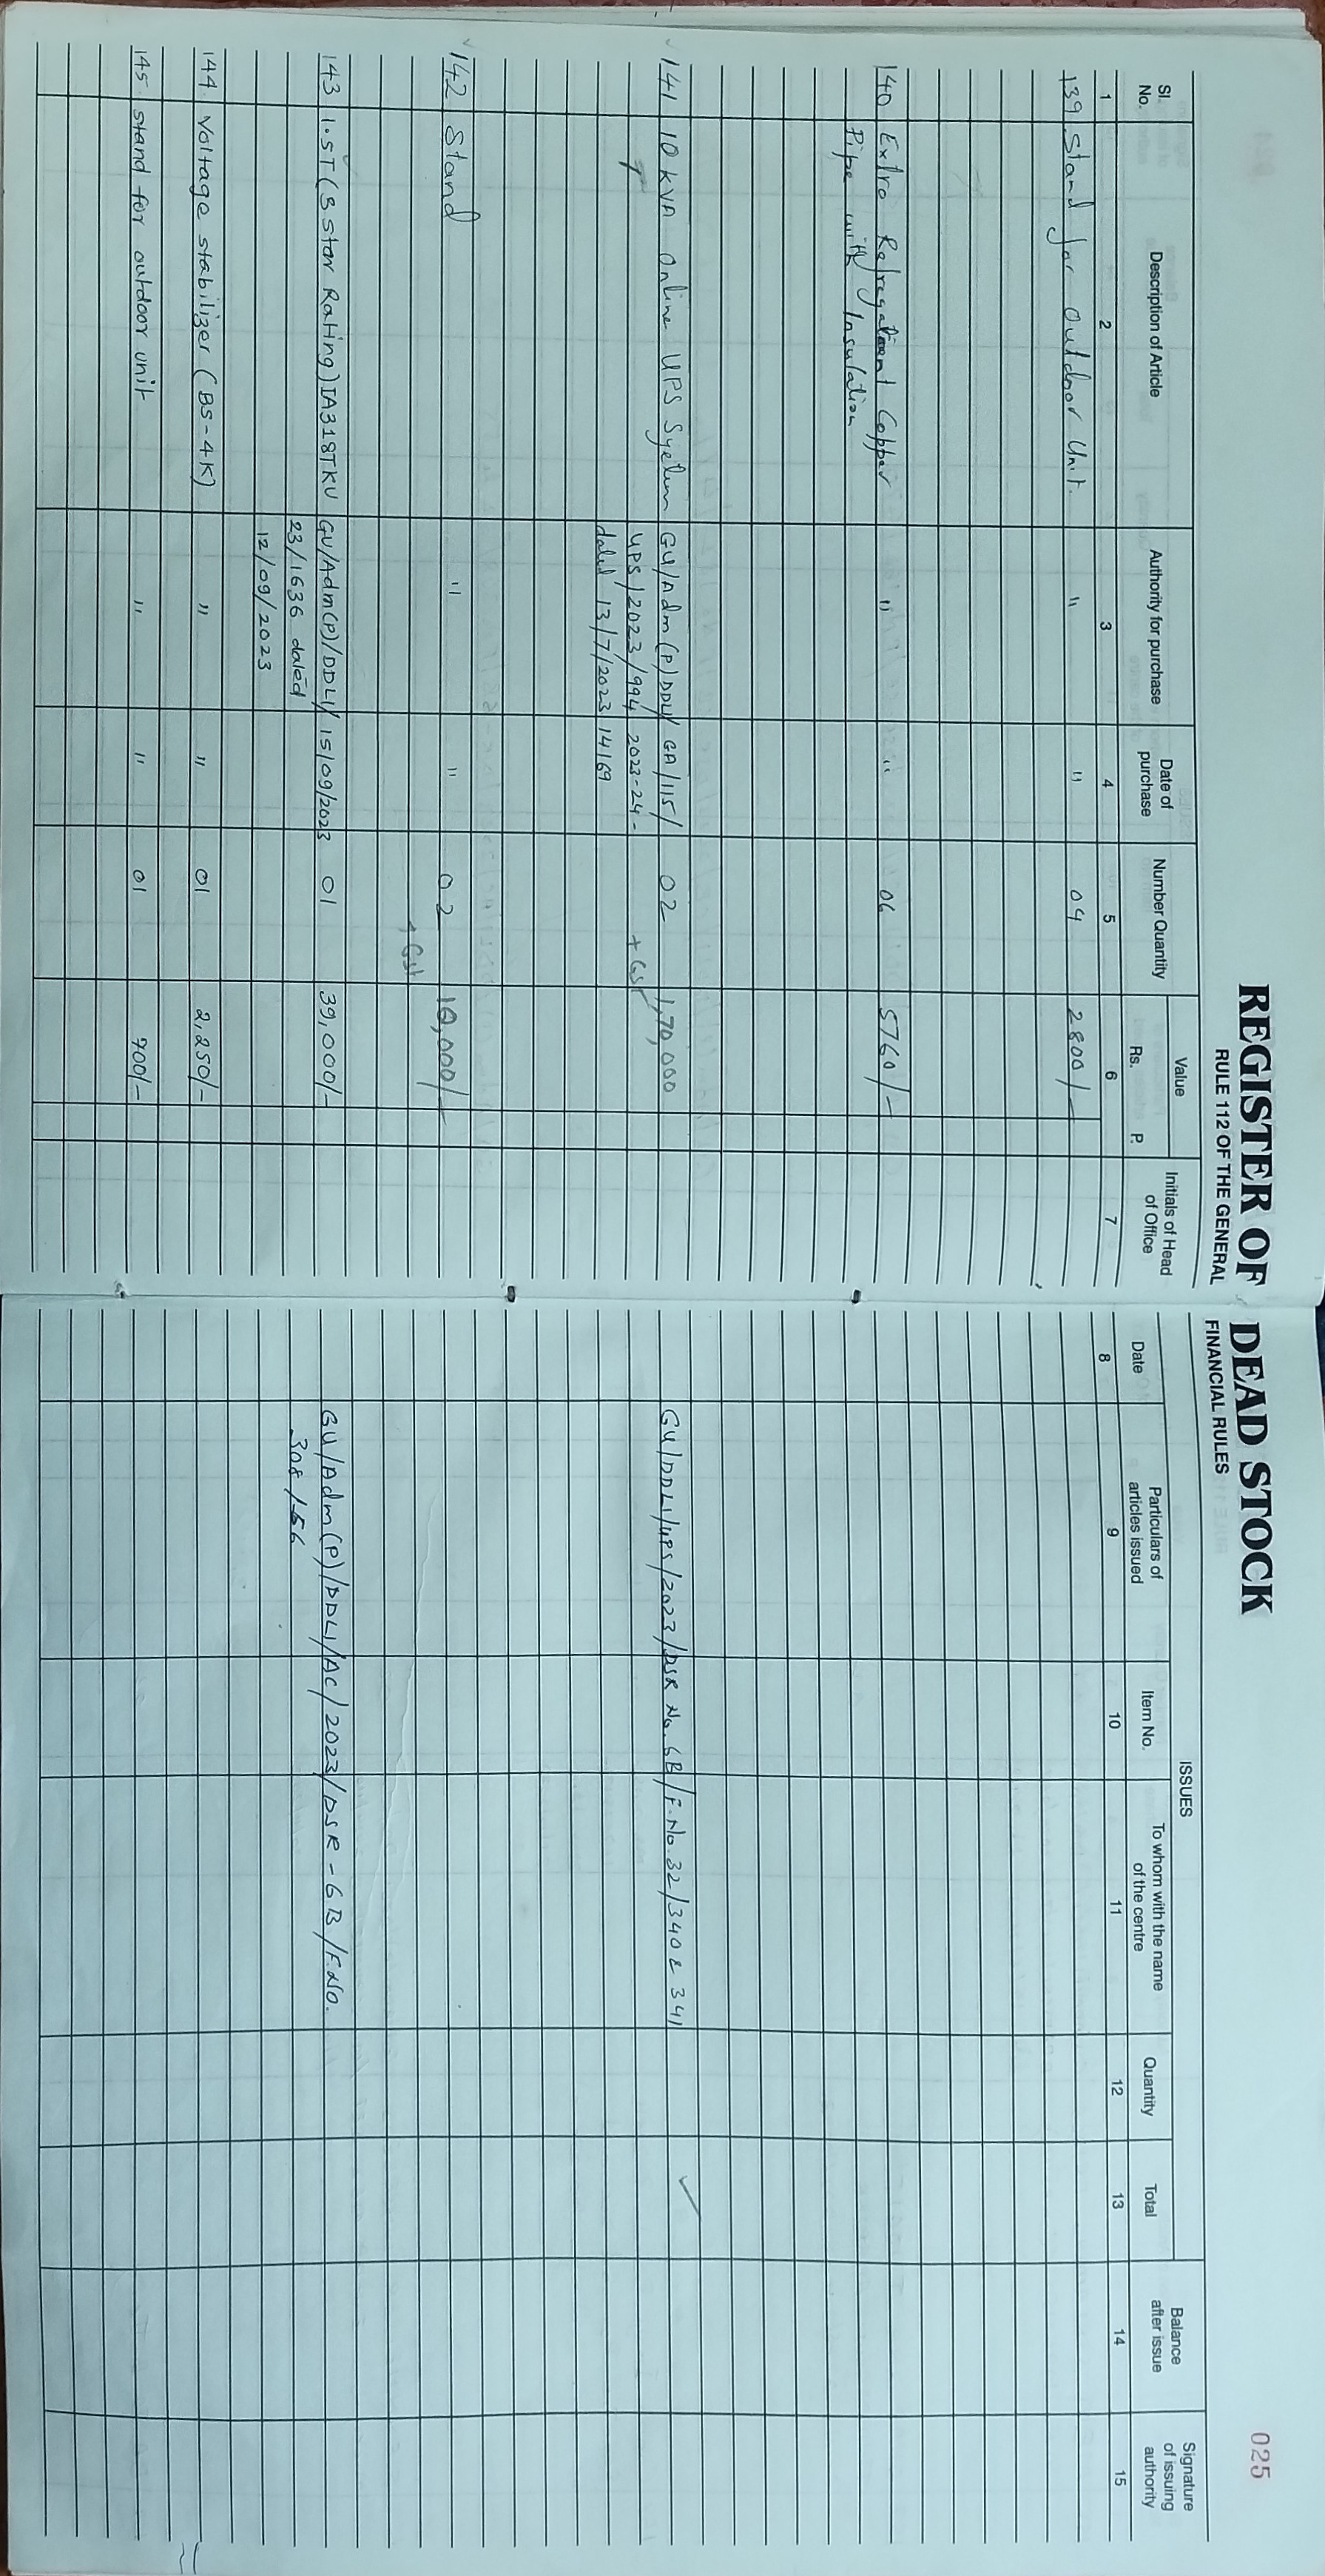 REGISTER OF DEAD STOCK
RULE 112 OF THE GENERAL FINANCIAL RULES
025
Sl. No.
Description of Article
Authority for purchase
Date of purchase
Number Quantity
Value
Rs.
P.
Initials of Head of Office
ISSUES
Date
Particulars of articles issued
Item No.
To whom with the name of the centre
Quantity
Total
Balance after issue
Signature of issuing authority
1 2 3 4 5 6 7 8 9 10 11 12 13 14 15
139 Stand for Outdoor Unit. " " 04 2800/-
140 Extra Copper " " 06 5760/-
Pipe with Insulation
141 10 KVA Online UPS System GU/Adm(P)DDLI/ GA/115/ 02 1,70,000 GU/DDLI/UPS/2023/DSR No. 6B/F.No.32/340 & 341
UPS/2023/994 2023-24- + GST
dated 13/7/2023 14169
142 Stand " " 02 10,000/-
+ GST
143 1.5T(3 Star Rating)IA318TKU GU/Adm(P)/DDLI/ 15/09/2023 01 39,000/- GU/Adm(P)/DDLI/AC/2023/DSR-6B/F.No.
23/1636 dated
12/09/2023
144. Voltage stabilizer (BS-4K) " " 01 2,250/-
145. Stand for outdoor unit " " 01 700/-